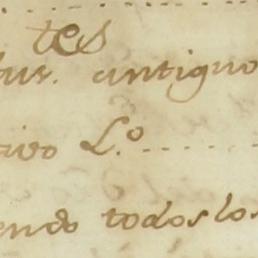 tes
bus. antiguo
tivo L.º
endo todos los